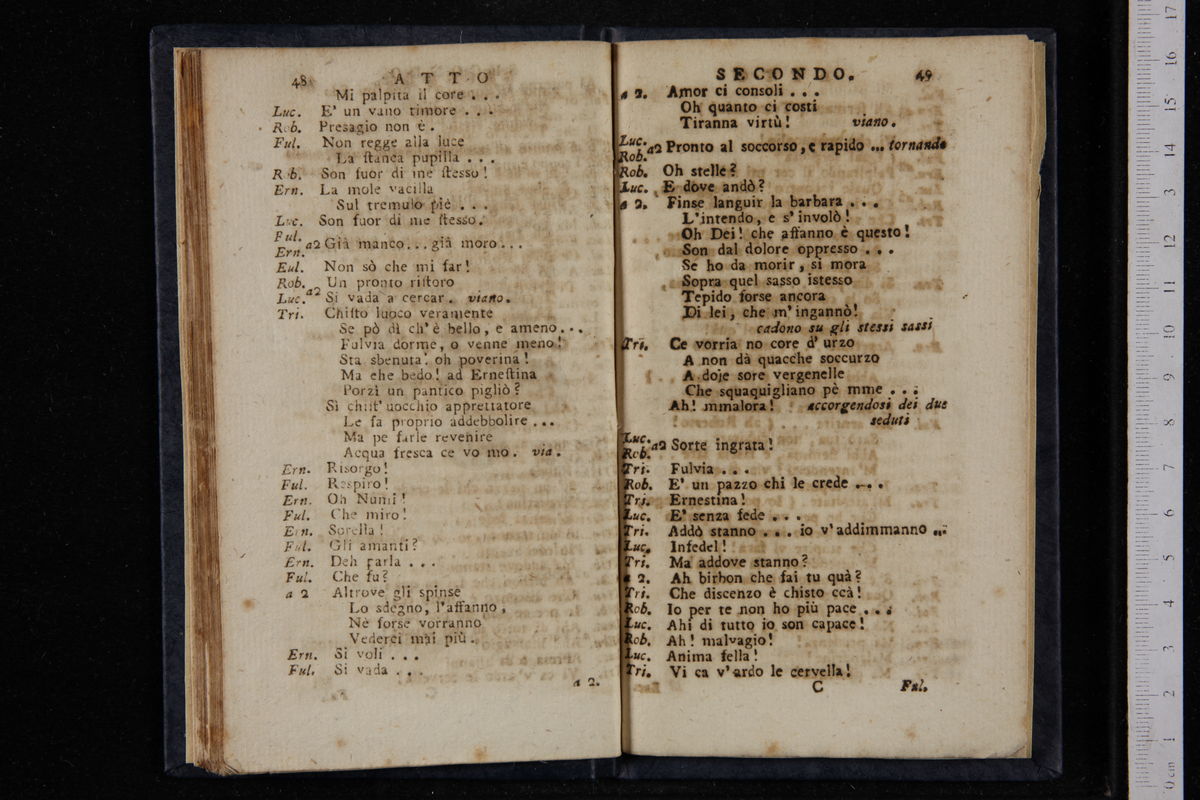 48 ATTO
Mi palpita il core . . .
Luc. E' un vano timore . . .
Rob. Presagio non è .
Ful. Non regge alla luce
La ſtanca pupilla . . .
Rob. Son fuor di me ſteſso !
Ern. La mole vacilla
Sul tremulo piè . . .
Luc. Son fuor di me ſteſso.
Ful.
Ern. a2 Già manco...già moro...
Eul. Non sò che mi far !
Rob. Un pronto riſtoro
Luc. a2 Si vada a cercar . viano.
Tri. Chiſto luoco veramente
Se pò dì ch' è bello, e ameno...
Fulvia dorme, o venne meno !
Sta sbenuta! oh poverina !
Ma che bedo! ad Erneſtina
Porzì un pantico pigliò ?
Sì chiſt' uocchio apprettatore
Le fa proprio addebbolire ...
Ma pe farle revenire
Acqua fresca ce vo mo. via.
Ern. Risorgo !
Ful. Respiro !
Ern. Oh Numi !
Ful. Che miro !
Ern. Sorella !
Ful. Gli amanti ?
Ern. Deh parla . . .
Ful. Che fu ?
a 2 Altrove gli spinse
Lo sdegno, l'affanno ,
Nè forse vorranno
Vederci mai più .
Ern. Si voli . . .
Ful. Si vada . . .
a 2.
SECONDO. 49
a 2. Amor ci consoli . . .
Oh quanto ci costi
Tiranna virtù ! viano.
Luc.
Rob. a2 Pronto al soccorso, e rapido ... tornando
Rob. Oh stelle ?
Luc. E dove andò ?
a 2. Finse languir la barbara . . .
L'intendo, e s' involò !
Oh Dei ! che affanno è questo !
Son dal dolore oppresso . . .
Se ho da morir, si mora
Sopra quel sasso istesso
Tepido forse ancora
Di lei, che m' ingannò!
cadono su gli stessi sassi
Tri. Ce vorria no core d' urzo
A non dà quacche soccurzo
A doje sore vergenelle
Che squaquigliano pè mme . . .
Ah! mmalora! accorgendosi dei due
seduti
Luc.
Rob. a2 Sorte ingrata !
Tri. Fulvia . . .
Rob. E' un pazzo chi le crede . . .
Tri. Ernestina !
Luc. E' senza fede . . .
Tri. Addò stanno . . . io v' addimmanno ...
Luc. Infedel !
Tri. Ma addove stanno ?
a 2. Ah birbon che fai tu quà ?
Tri. Che discenzo è chisto ccà !
Rob. Io per te non ho più pace . . .
Luc. Ahi di tutto io son capace !
Rob. Ah ! malvagio !
Luc. Anima fella !
Tri. Vi ca v' ardo le cervella !
C Ful.
0 cm 1 2 3 4 5 6 7 8 9 10 11 12 13 14 15 16 17